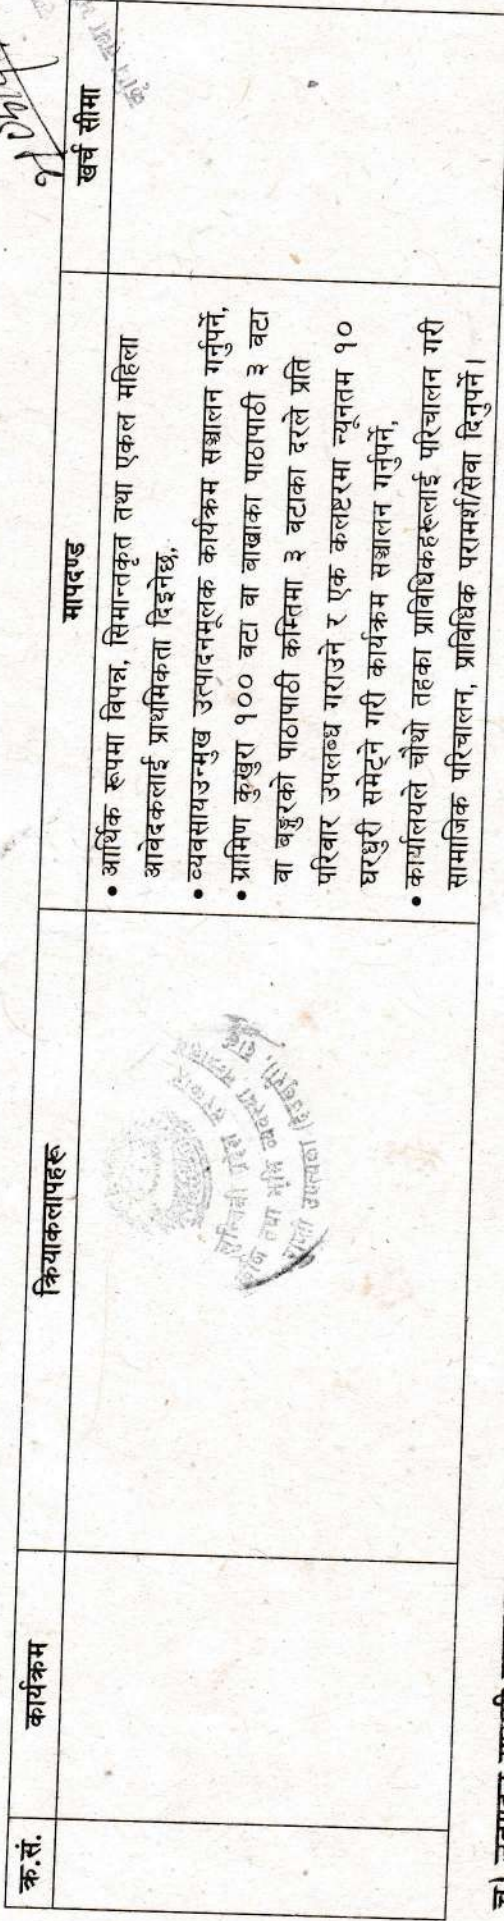 क्र.सं.
कार्यक्रम
क्रियाकलापहरू
मापदण्ड
खर्च सीमा
• आर्थिक रूपमा विपन्न, सिमान्तकृत तथा एकल महिला
आवेदकलाई प्राथमिकता दिइनेछ,
• व्यवसायउन्मुख उत्पादनमूलक कार्यक्रम सञ्चालन गर्नुपर्ने,
• ग्रामिण कुखुरा १०० वटा वा बाख्राका पाठापाठी ३ वटा
वा बङ्गुरको पाठापाठी कम्तिमा ३ वटाका दरले प्रति
परिवार उपलब्ध गराउने र एक कलष्टरमा न्यूनतम १०
घरधुरी समेट्ने गरी कार्यक्रम सञ्चालन गर्नुपर्ने,
• कार्यालयले चौथो तहका प्राविधिकहरूलाई परिचालन गरी
सामाजिक परिचालन, प्राविधिक परामर्श/सेवा दिनुपर्ने।
लुम्बिनी प्रदेश सरकार
तथा भूमि व्यवस्था
राप्ती उपत्यका (देउखुरी),